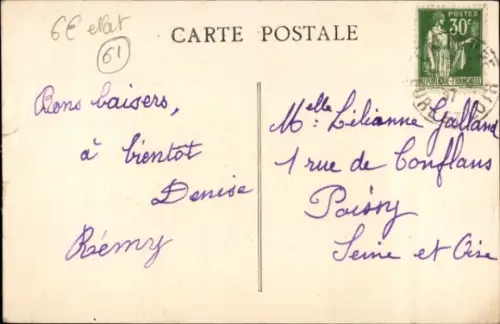 6€ etat
61
CARTE POSTALE
POSTES
30c
REPUBLIQUE FRANCAISE
Bons baisers,
à bientot
Denise
Rémy
Melle Lilianne Galland
1 rue de Conflans
Poissy
Seine et Oise